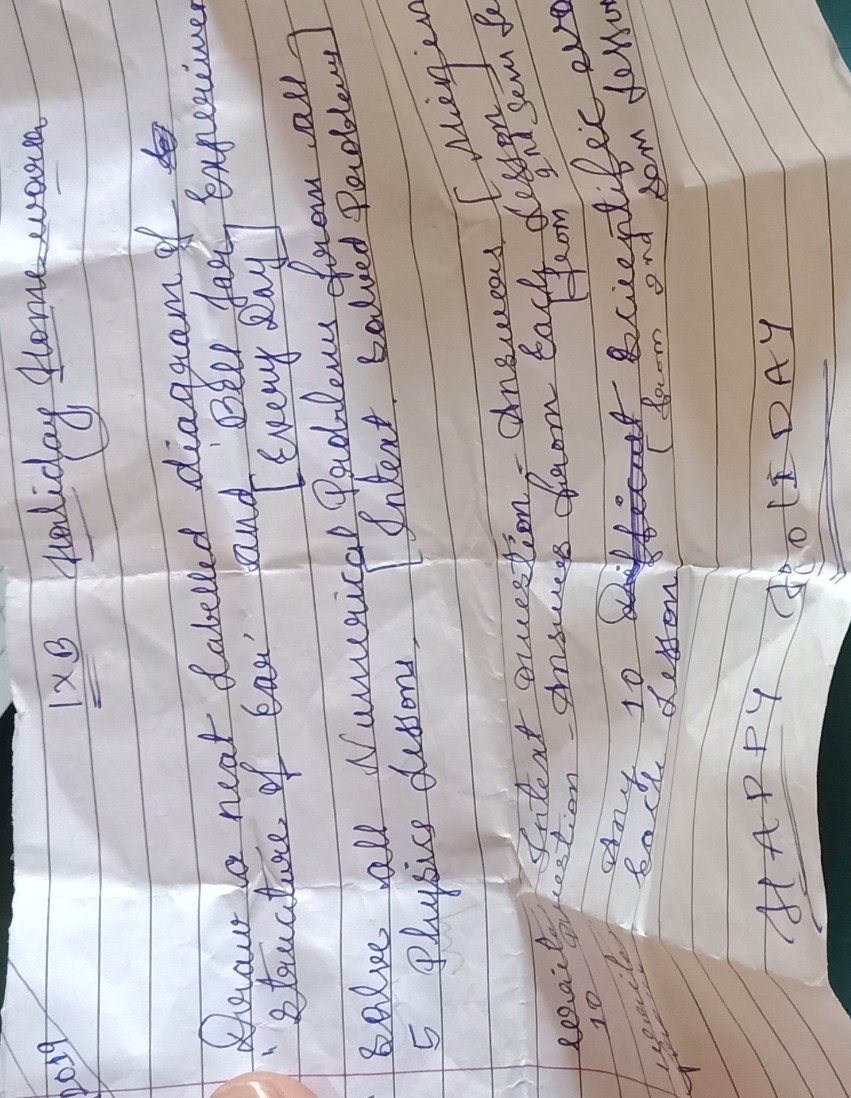 2019
IXB Holiday Home-work
Draw a neat Labelled diagram of
"Structure of Ear" and 'Bell Jar' Experimen
[Every Day]
Solve all Numerical Problems from all
5 Physics Lessons. [Intext, Solved Problems]
Intext Question - Answers.
10 Question - Answers from Each Lesson
[from 2nd sem Le
Any 10 Scientific
Each Lesson [from 2nd Sem Lesson
HAPPY HOLIDAY